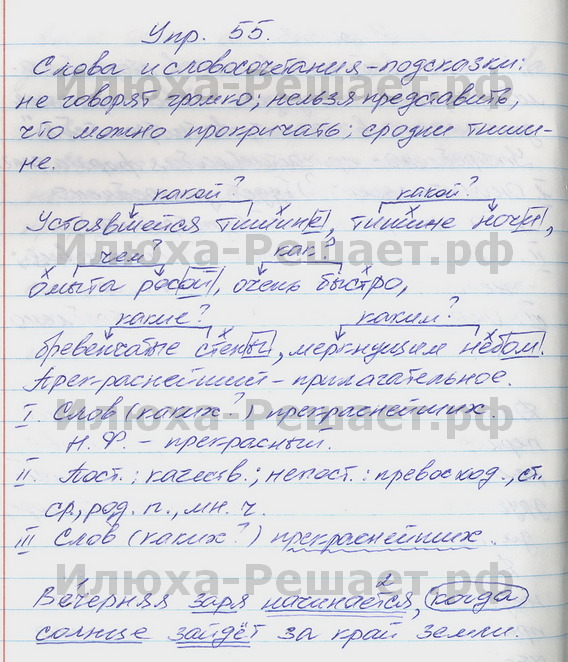 Упр. 55.
Слова и словосочетания-подсказки:
не говорят громко; нельзя представить,
что можно прокричать; сродни тиши-
не.
какой? какой?
Устоявшейся тишине, тишине ночи,
чем? как?
омыта росой, очень быстро,
какие? каким?
бревенчатые стены, меркнущим небом.
Прекраснейший - прилагательное.
I. Слов (каких?) прекраснейших.
Н.Ф. - прекрасный.
II. Пост.: качеств.; непост.: превосход., ст.
ср., род. п., мн. ч.
III Слов (каких?) прекраснейших.
1 2
Вечерняя заря начинается, когда
солнце зайдёт за край земли.
Илюха-Решает.рф
Илюха-Решает.рф
Илюха-Решает.рф
Илюха-Решает.рф
Илюха-Решает.рф